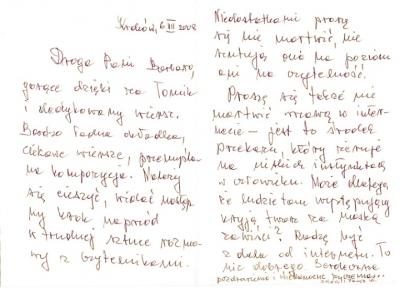 Kraków, 6 III 2008
Droga Pani Barbaro,
gorące dzięki za Tomik
i dedykowany wiersz.
Bardzo ładna okładka,
ciekawe wiersze, przemyśla-
na kompozycja. Należy
się cieszyć, widać następ-
ny krok naprzód
w trudnej sztuce rozmo-
wy z czytelnikami.
Niedostatkami proszę
się nie martwić, nie
rzutują one na poziom
ani na czytelność.
Proszę się także nie
martwić wrzawą w inter-
necie – jest to środek
przekazu, który żeruje
na niskich instynktach
w człowieku. Może dlatego,
że ludzie tam występujący
kryją twarz za maską
zawiści? Radzę być
z dala od internetu. To
nic dobrego. Serdeczne
pozdrowienia i